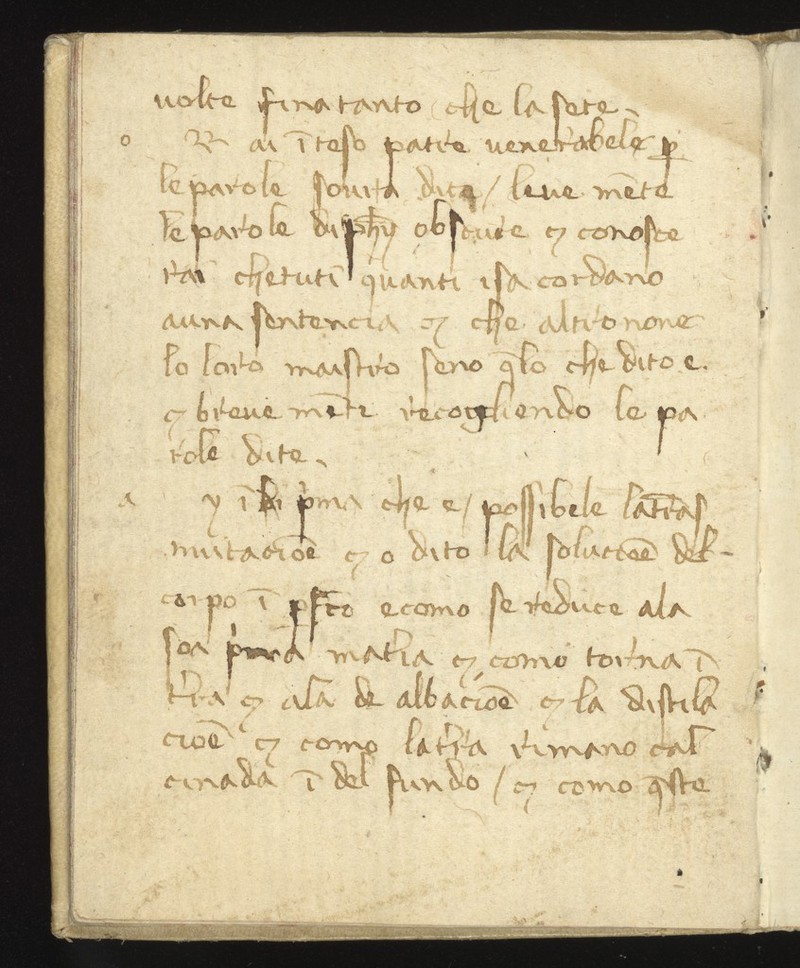 volte fina tanto / che la sete
o R ai ī teso patre venerabele p̱
le parole sovra dite / leve mēte
le parole di phy̅ obscure ⁊ conosce
rai che tuti quanti isa cordano
a una sentencia ⁊ che altro none
lo loro maistro seno q̄lo che dito e.
⁊ breve mēte recogliendo le pa
role dite
a y ī li p̓ma che e / possibele la trās
mutacioē ⁊ o dito la solucioē del-
corpo ī pfc̄o e como se reduce a la
soa p̓ma mat̓ia ⁊ como torna ī
t̓ra ⁊ a la de albacioē ⁊ la distila
cioē ⁊ como la t̓ra rimano cal
cinada ī del fundo / ⁊ como q̄ste